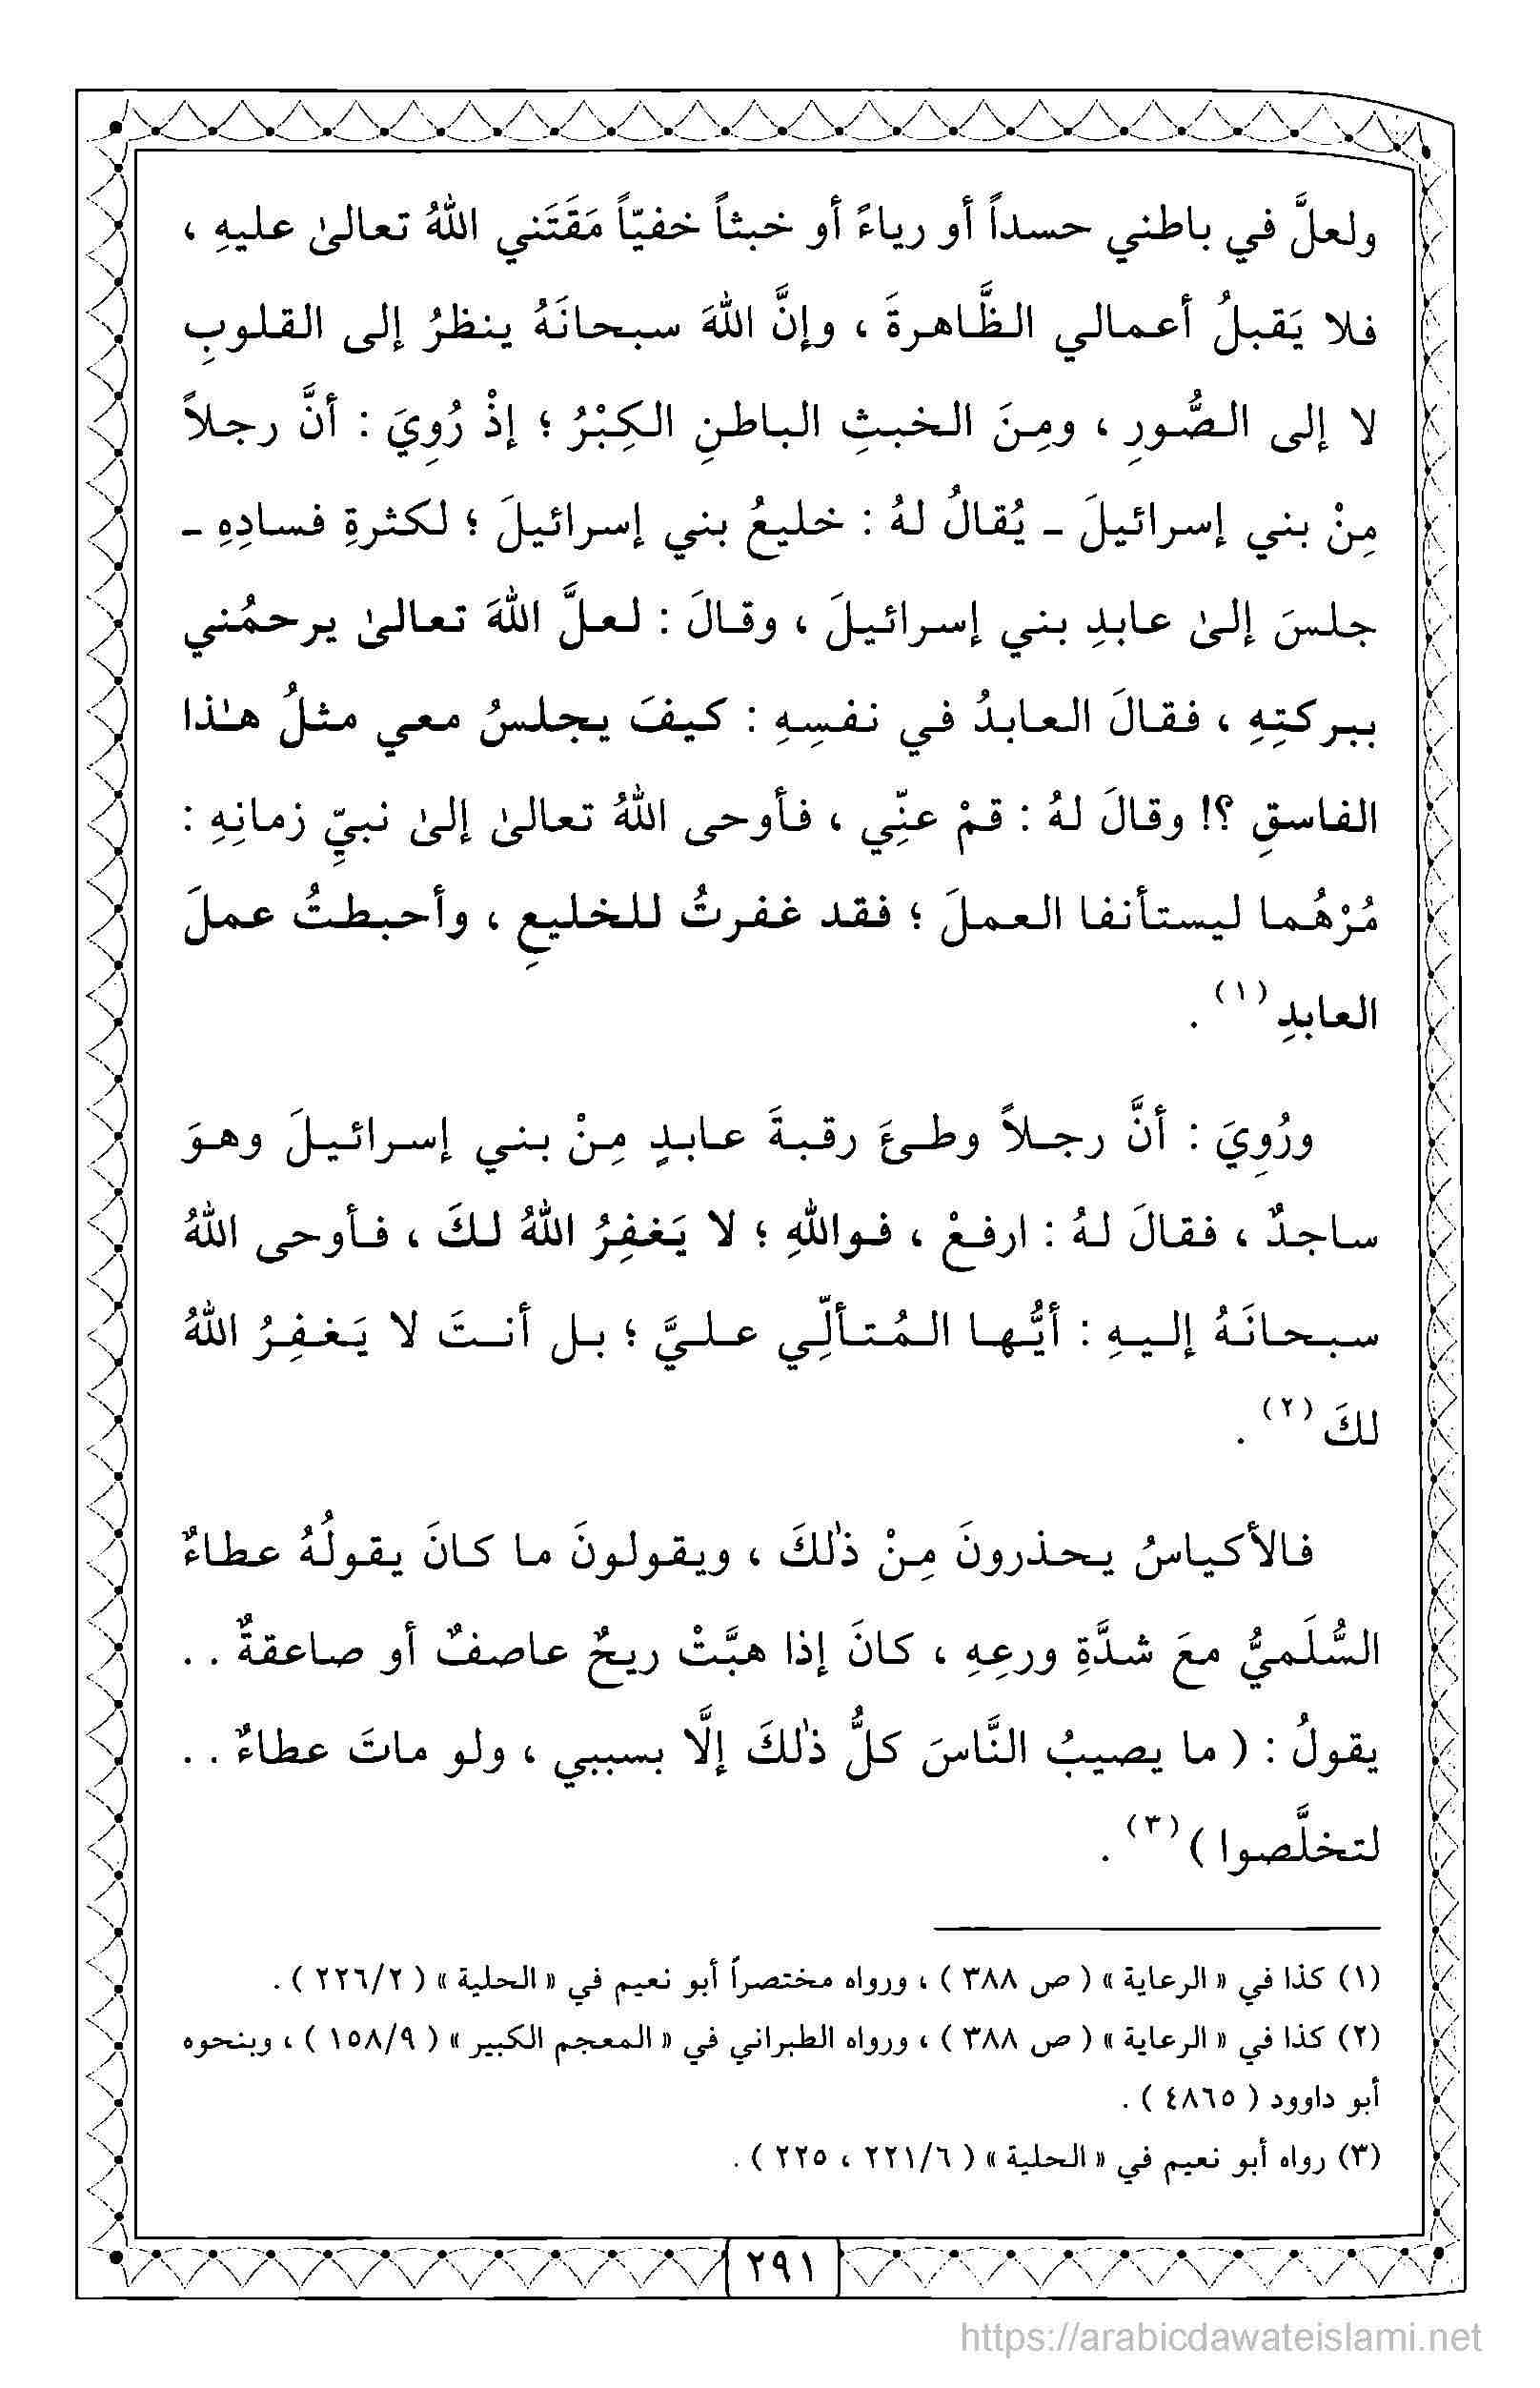 ولعلَّ في باطني حسداً أو رياءً أو خبثاً خفيّاً مَقَتَني اللهُ تعالىٰ عليهِ ،
فلا يَقبلُ أعمالي الظَّاهرةَ ، وإنَّ اللهَ سبحانَهُ ينظرُ إلى القلوبِ
لا إلى الصُّورِ ، ومِنَ الخبثِ الباطنِ الكِبْرُ ؛ إذْ رُوِيَ : أنَّ رجلاً
مِنْ بني إسرائيلَ ـ يُقالُ لهُ : خليعُ بني إسرائيلَ ؛ لكثرةِ فسادِهِ ـ
جلسَ إلىٰ عابدِ بني إسرائيلَ ، وقالَ : لعلَّ اللهَ تعالىٰ يرحمُني
ببركتِهِ ، فقالَ العابدُ في نفسِهِ : كيفَ يجلسُ معي مثلُ هـٰذا
الفاسقِ ؟! وقالَ لهُ : قمْ عنِّي ، فأوحى اللهُ تعالىٰ إلىٰ نبيِّ زمانِهِ :
مُرْهُما ليستأنفا العملَ ؛ فقد غفرتُ للخليعِ ، وأحبطتُ عملَ
العابدِ (١) .
ورُوِيَ : أنَّ رجلاً وطئَ رقبةَ عابدٍ مِنْ بني إسرائيلَ وهوَ
ساجدٌ ، فقالَ لهُ : ارفعْ ، فواللهِ ؛ لا يَغفِرُ اللهُ لكَ ، فأوحى اللهُ
سبحانَهُ إليهِ : أيُّها المُتألِّي عليَّ ؛ بل أنتَ لا يَغفِرُ اللهُ
لكَ (٢) .
فالأكياسُ يحذرونَ مِنْ ذٰلكَ ، ويقولونَ ما كانَ يقولُهُ عطاءٌ
السُّلَميُّ معَ شدَّةِ ورعِهِ ، كانَ إذا هبَّتْ ريحٌ عاصفٌ أو صاعقةٌ . .
يقولُ : ( ما يصيبُ النَّاسَ كلُّ ذٰلكَ إلَّا بسببي ، ولو ماتَ عطاءٌ . .
لتخلَّصوا ) (٣) .
(١) كذا في « الرعاية » ( ص ٣٨٨ ) ، ورواه مختصراً أبو نعيم في « الحلية » ( ٢٢٦/٢ ) .
(٢) كذا في « الرعاية » ( ص ٣٨٨ ) ، ورواه الطبراني في « المعجم الكبير » ( ١٥٨/٩ ) ، وبنحوه
أبو داوود ( ٤٨٦٥ ) .
(٣) رواه أبو نعيم في « الحلية » ( ٢٢١/٦ ، ٢٢٥ ) .
٢٩١
https://arabicdawateislami.net